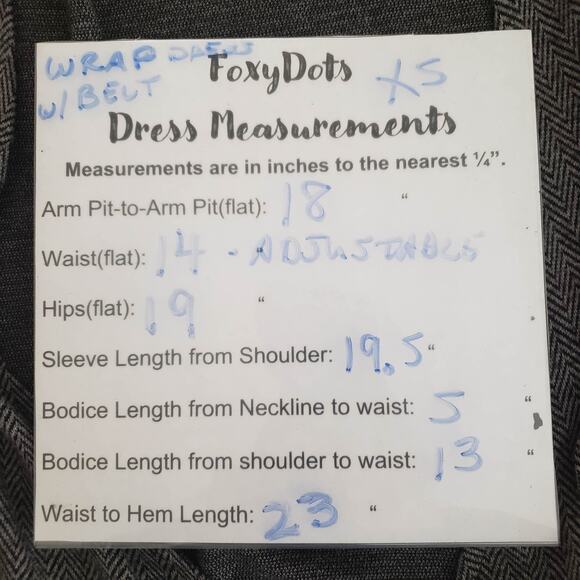 WRAP DRESS
W/ BELT
FoxyDots
XS
Dress Measurements
Measurements are in inches to the nearest ¼”.
Arm Pit-to-Arm Pit(flat): 18 “
Waist(flat): 14 “ - ADJUSTABLE
Hips(flat): 19 “
Sleeve Length from Shoulder: 19.5 “
Bodice Length from Neckline to waist: 5 “
Bodice Length from shoulder to waist: 13 “
Waist to Hem Length: 23 “